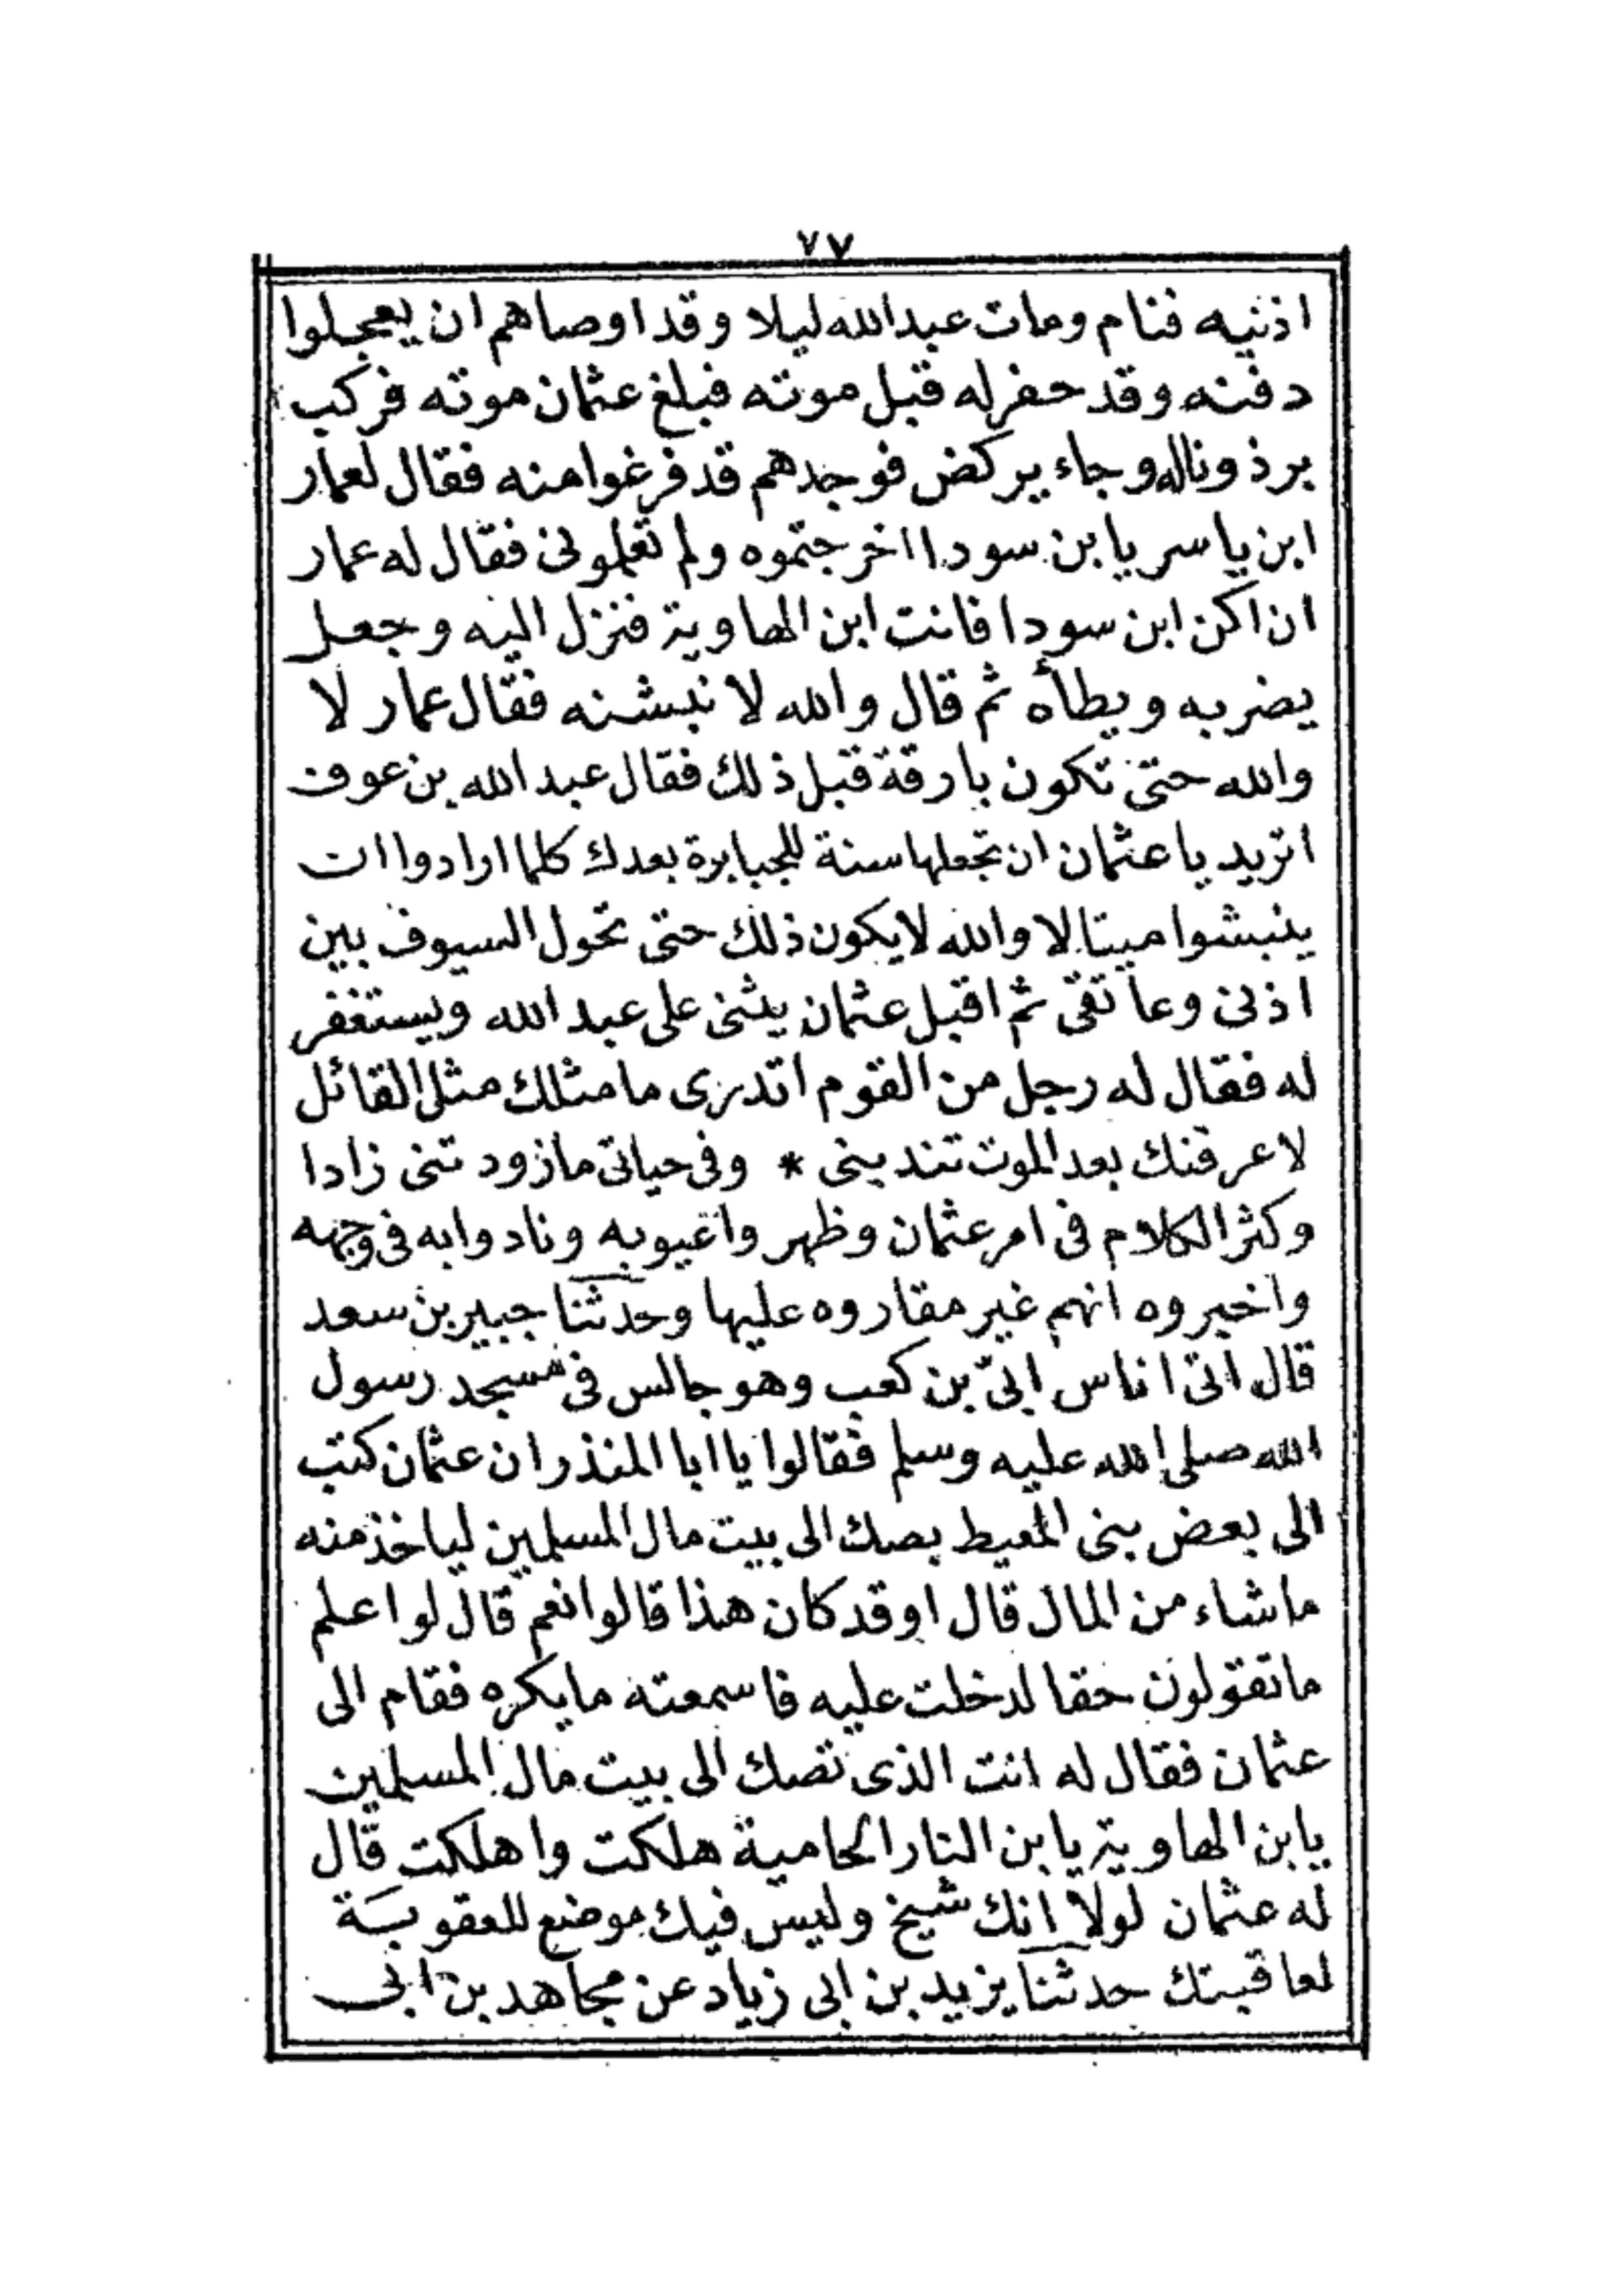 ٧٧
اذنيه فنام ومات عبدالله ليلا وقد اوصاهم ان يعجلوا
دفنه وقد حفرله قبل موته فبلغ عثمان موته فركب
برذوناله وجاء يركض فوجدهم قد فرغوا منه فقال لعمار
ابن ياسر يا بن سودا اخرجتموه ولم تعلمونى فقال له عمار
ان اكن ابن سودا فانت ابن الهاوية فنزل اليه وجعل
يضربه ويطأه ثم قال والله لا نبشنه فقال عمار لا
والله حتى تكون بارقة قبل ذلك فقال عبد الله بن عوف
اتريد يا عثمان ان تجعلها سنة للجبابرة بعدك كلما ارادوا ان
ينبشوا ميتا لا والله لا يكون ذلك حتى تحول السيوف بين
اذنى وعاتقى ثم اقبل عثمان يثنى على عبد الله ويستغفر
له فقال له رجل من القوم اتدرى ما مثلك مثل القائل
لاعرفنك بعد الموت تندبنى * وفى حياتى ما زودتنى زادا
وكثر الكلام فى امر عثمان وظهر واعيوبه ونادوابه فى وجهه
واخبروه انهم غير مقاروه عليها وحدثنا جبير بن سعد
قال اتى اناس ابىّ بن كعب وهو جالس فى مسجد رسول
الله صلى الله عليه وسلم فقالوا يا ابا المنذر ان عثمان كتب
الى بعض بنى المعيط بصك الى بيت مال المسلمين لياخذ منه
ماشاء من المال قال اوقد كان هذا قالوا نعم قال لو اعلم
ما تقولون حقا لدخلت عليه فاسمعته ما يكره فقام الى
عثمان فقال له انت الذى تصك الى بيت مال المسلمين
يا بن الهاوية يا بن النار الحامية هلكت واهلكت قال
له عثمان لولا انك شيخ وليس فيك موضع للعقوبة
لعاقبتك حدثنا يزيد بن ابى زياد عن مجاهد بن ابى